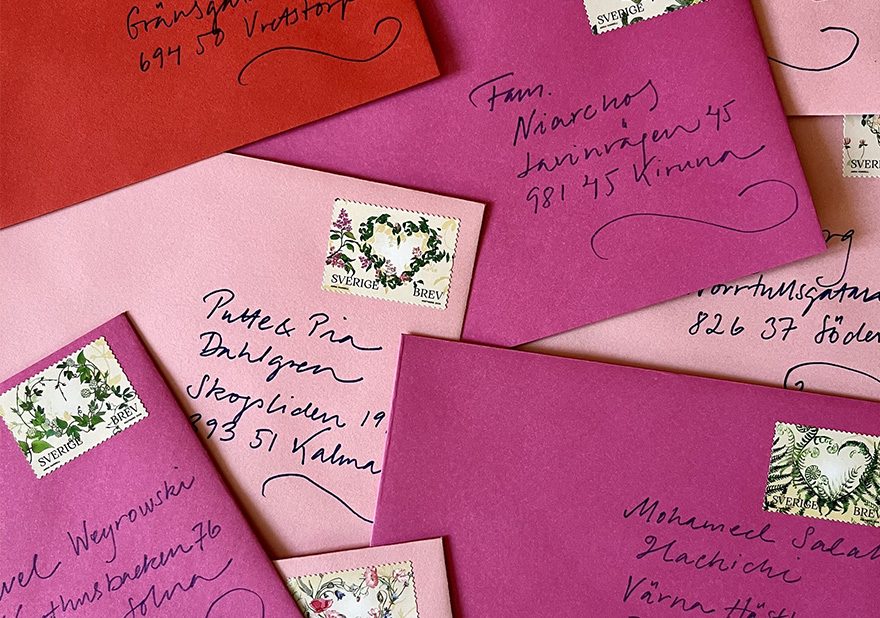 694 50 Vretstorp
SVERIGE
Fam.
Niarchos
Lavinvägen 45
981 45 Kiruna
SVERIGE BREV
Putte & Pia
Dahlgren
Skogsliden 19
393 51 Kalma
826 37 Söder
SVERIGE BREV
Weyrowski
76
Solna
SVERIGE BREV
Mohamed Salah
Hachichi
Värna